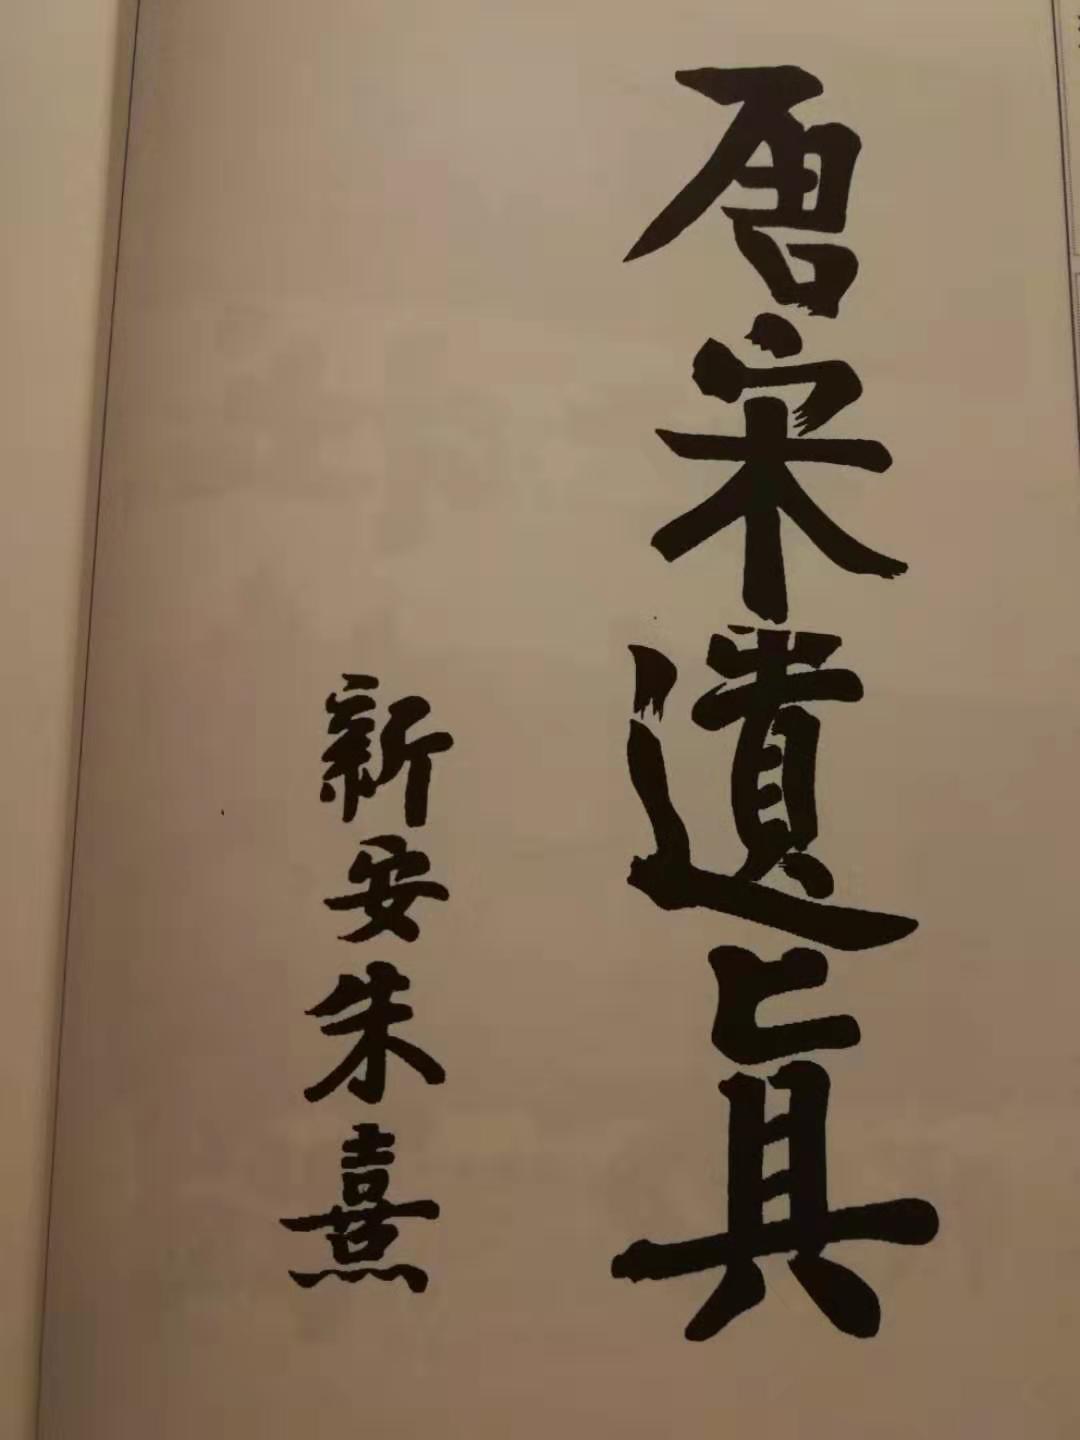 唐宋遺眞
新安朱熹